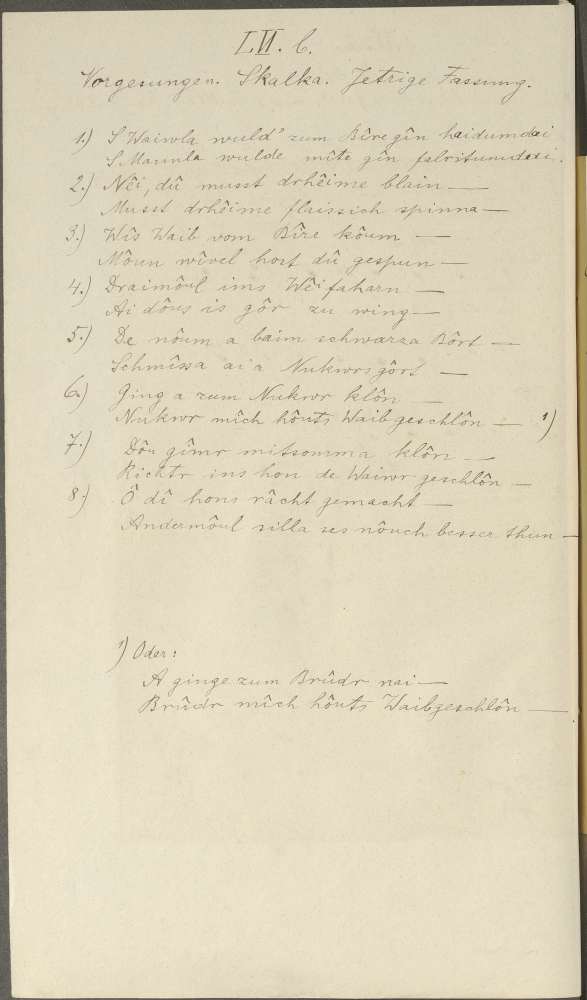 LVI. b.
Vorgesungen. Skalka. Jetzige Fassung.
1.) S'Waiwla wuld' zum Bîre gîn haidumdai
S Mannla wulde mîte gîn falritumdaai.
2.) Nêi, dû musst drhêime blain —
Musst drhêime flaissich spinna —
3.) Wîs Waib vom Bîre kôum —
Môun wîvel host dû gespun —
4.) Draimôul ims Wêifaharn —
Ai dôus is gôr zu wing —
5.) De nôum a baim schwarza Bôrt —
Schmîssa ai a Nukwrsgôrt —
6.) Ging a zum Nukwr klôn —
Nukwr mîch hôuts Waib geschlôn — 1)
7.) Dôu gîmr mitsomma klôn —
Richtr ins hon de Waiwr geschlôn —
8.) Ô dî hons râcht gemacht —
Andermôul silla ses nôuch besser thun —
1) Oder:
A ginge zum Brûdr nai —
Brûdr mîch hôuts Waib geschlôn —